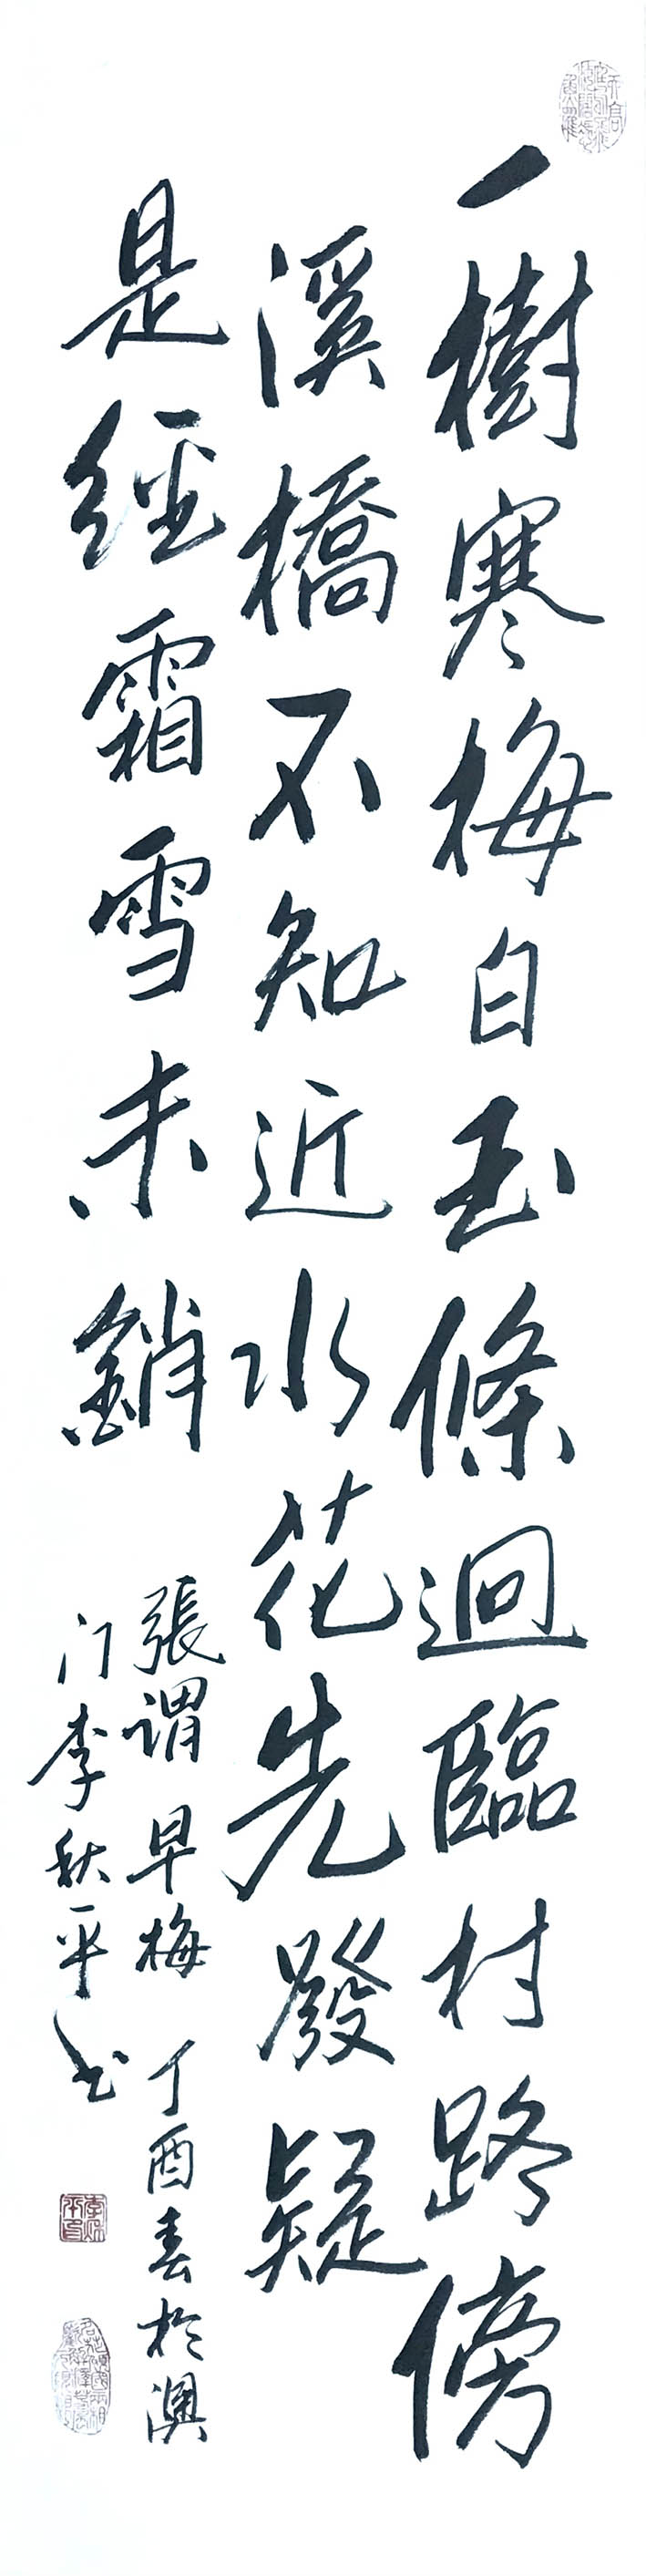 一樹寒梅白玉條迥臨村路傍
溪橋不知近水花先發疑
是經霜雪未銷
張謂早梅丁酉春於澳
门李秋平书